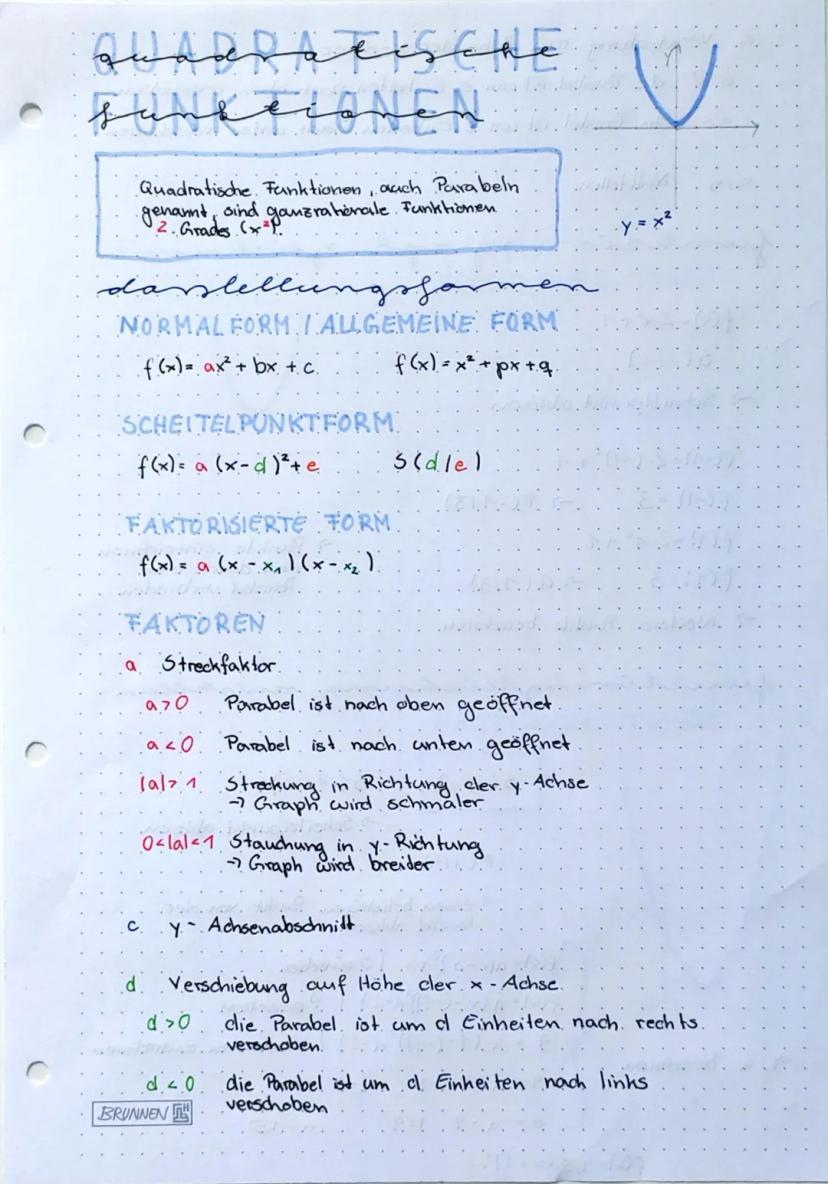 QUADRATISCHE
quadratische
FUNKTIONEN
funktionen
Quadratische Funktionen, auch Parabeln
genannt, sind ganzrationale Funktionen
2. Grades (x²).
y = x²
darstellungsformen
NORMALFORM / ALLGEMEINE FORM
f(x) = ax² + bx + c f(x) = x² + px + q
SCHEITELPUNKTFORM
f(x) = a (x - d)² + e S (d/e)
FAKTORISIERTE FORM
f(x) = a (x - x₁) (x - x₂)
FAKTOREN
a Streckfaktor
a > 0 Parabel ist nach oben geöffnet
a < 0 Parabel ist nach unten geöffnet
|a| > 1 Streckung in Richtung der y-Achse
→ Graph wird schmaler
0 < |a| < 1 Stauchung in y-Richtung
→ Graph wird breiter
c y-Achsenabschnitt
d Verschiebung auf Höhe der x-Achse
d > 0 die Parabel ist um d Einheiten nach rechts
verschoben
d < 0 die Parabel ist um d Einheiten nach links
verschoben
BRUNNEN